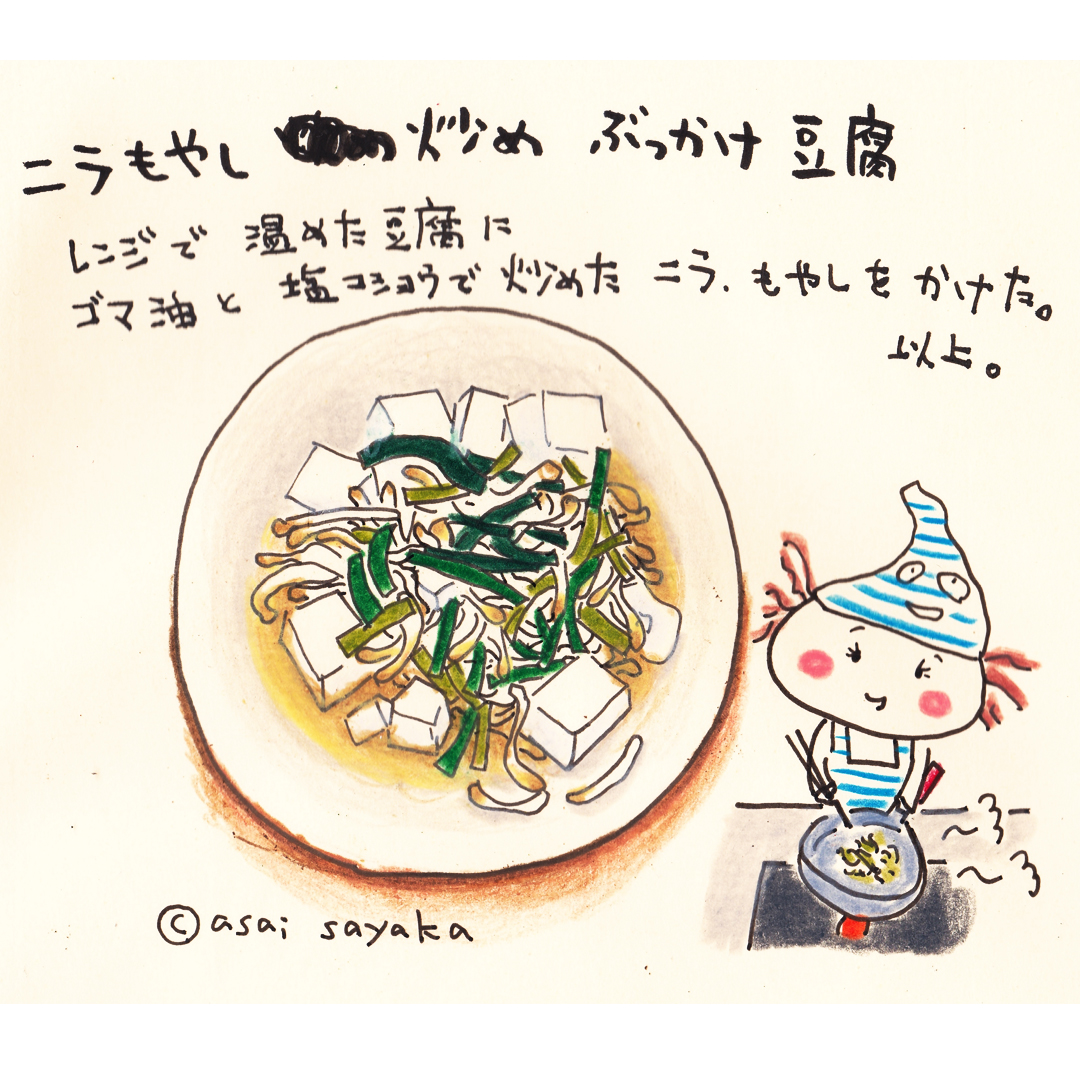 ニラもやし 炒め ぶっかけ豆腐
レンジで 温めた豆腐に
ゴマ油と 塩コショウで 炒めた ニラ、もやしを かけた。
以上。
©asai sayaka